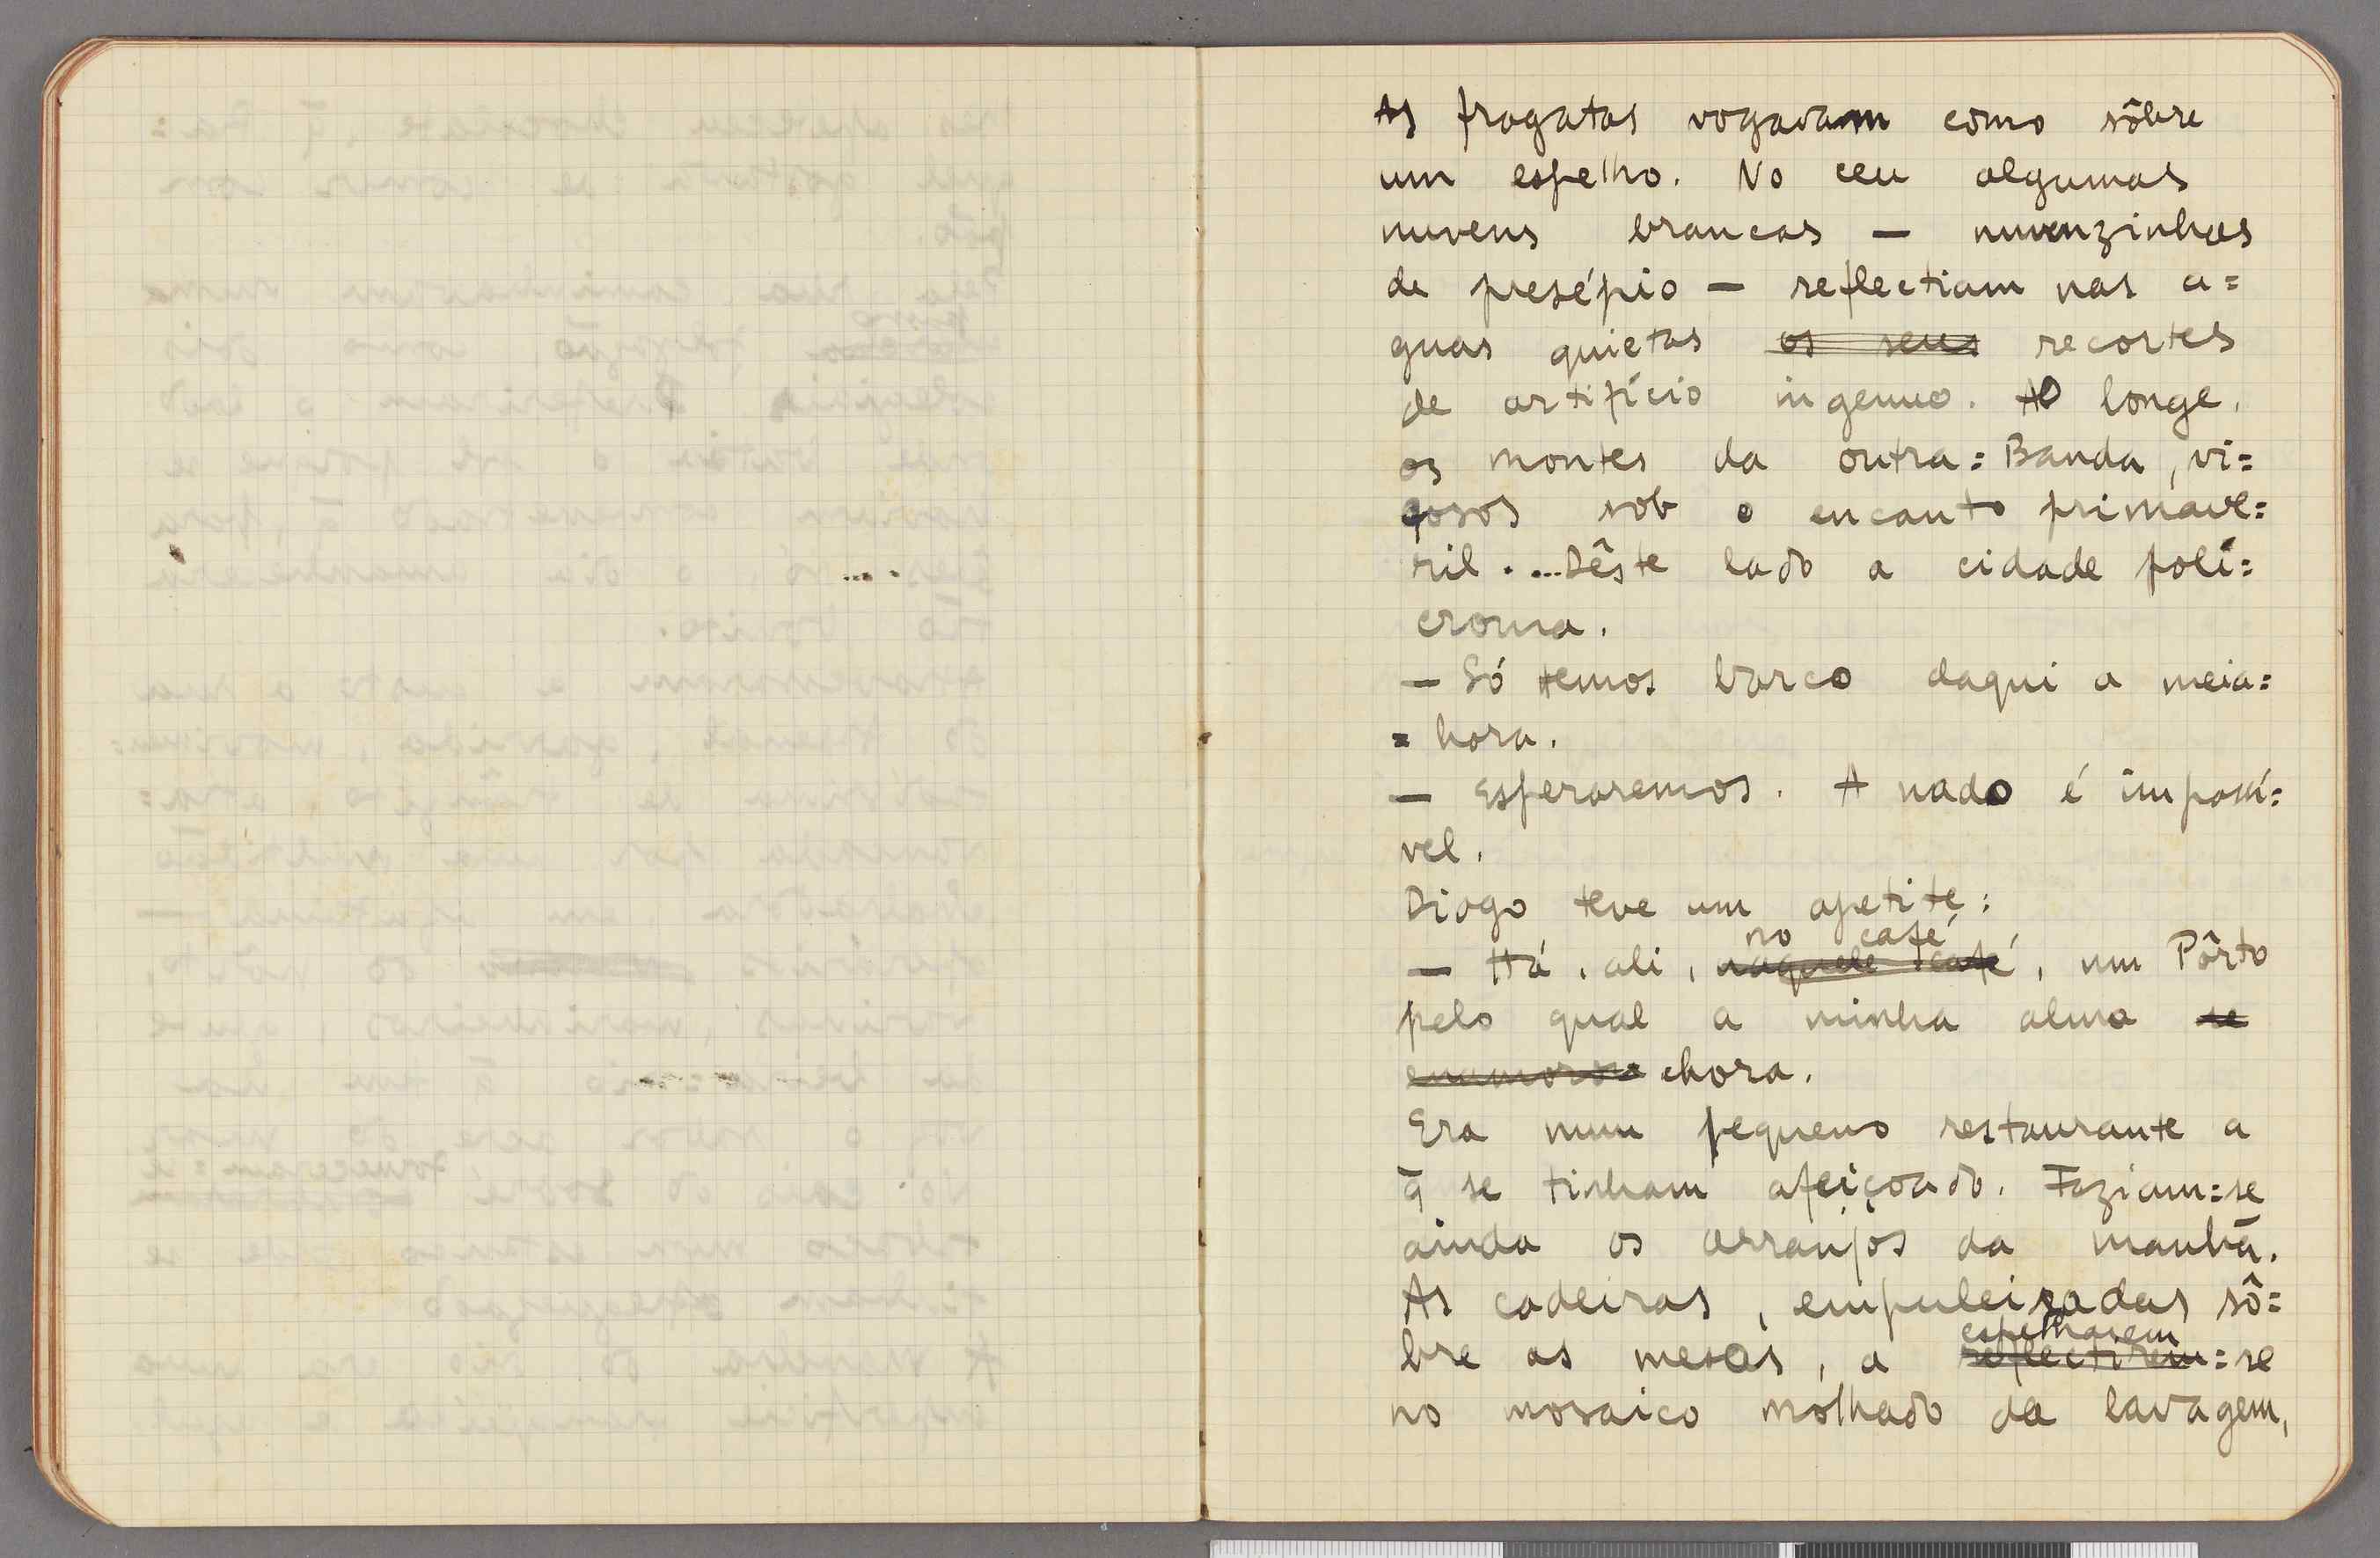 As fragatas vogavam como sôbre
um espelho. No ceu algumas
nuvens brancas — nuvenzinhas
de presépio — reflectiam nas a=
guas quietas os seus recortes
de artifício ingenuo. Ao longe,
os montes da outra=Banda, vi=
çosos sob o encanto primave=
ril. ...Dêste lado a cidade polí=
croma.
— Só temos barco daqui a meia=
=hora.
— Esperaremos. A nado é impossí=
vel.
Diogo teve um apetite:
no café
— Há, ali, naquele café, um Pôrto
pelo qual a minha alma se
enamorou chora.
Era num pequeno restaurante a
q̄ se tinham afeiçoado. Faziam=se
ainda os arranjos da manhã.
As cadeiras, empuleiradas sô=
espelharem
bre as mesas, a reflectirem=se
no mosaico molhado da lavagem,